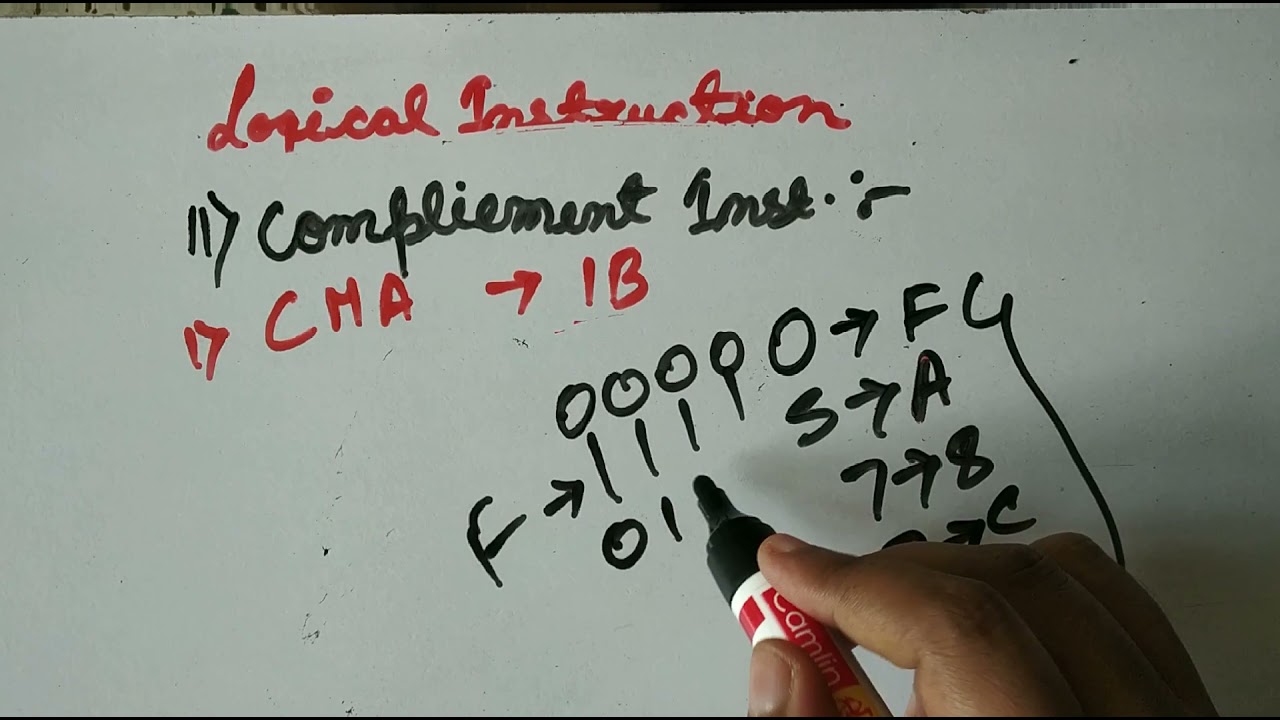 Logical Instruction
11) Compliement Inst. :-
1) CMA → 1B
0000 0 → F
1111 5 → A
F → 7 → 8
01 → C
Camlin